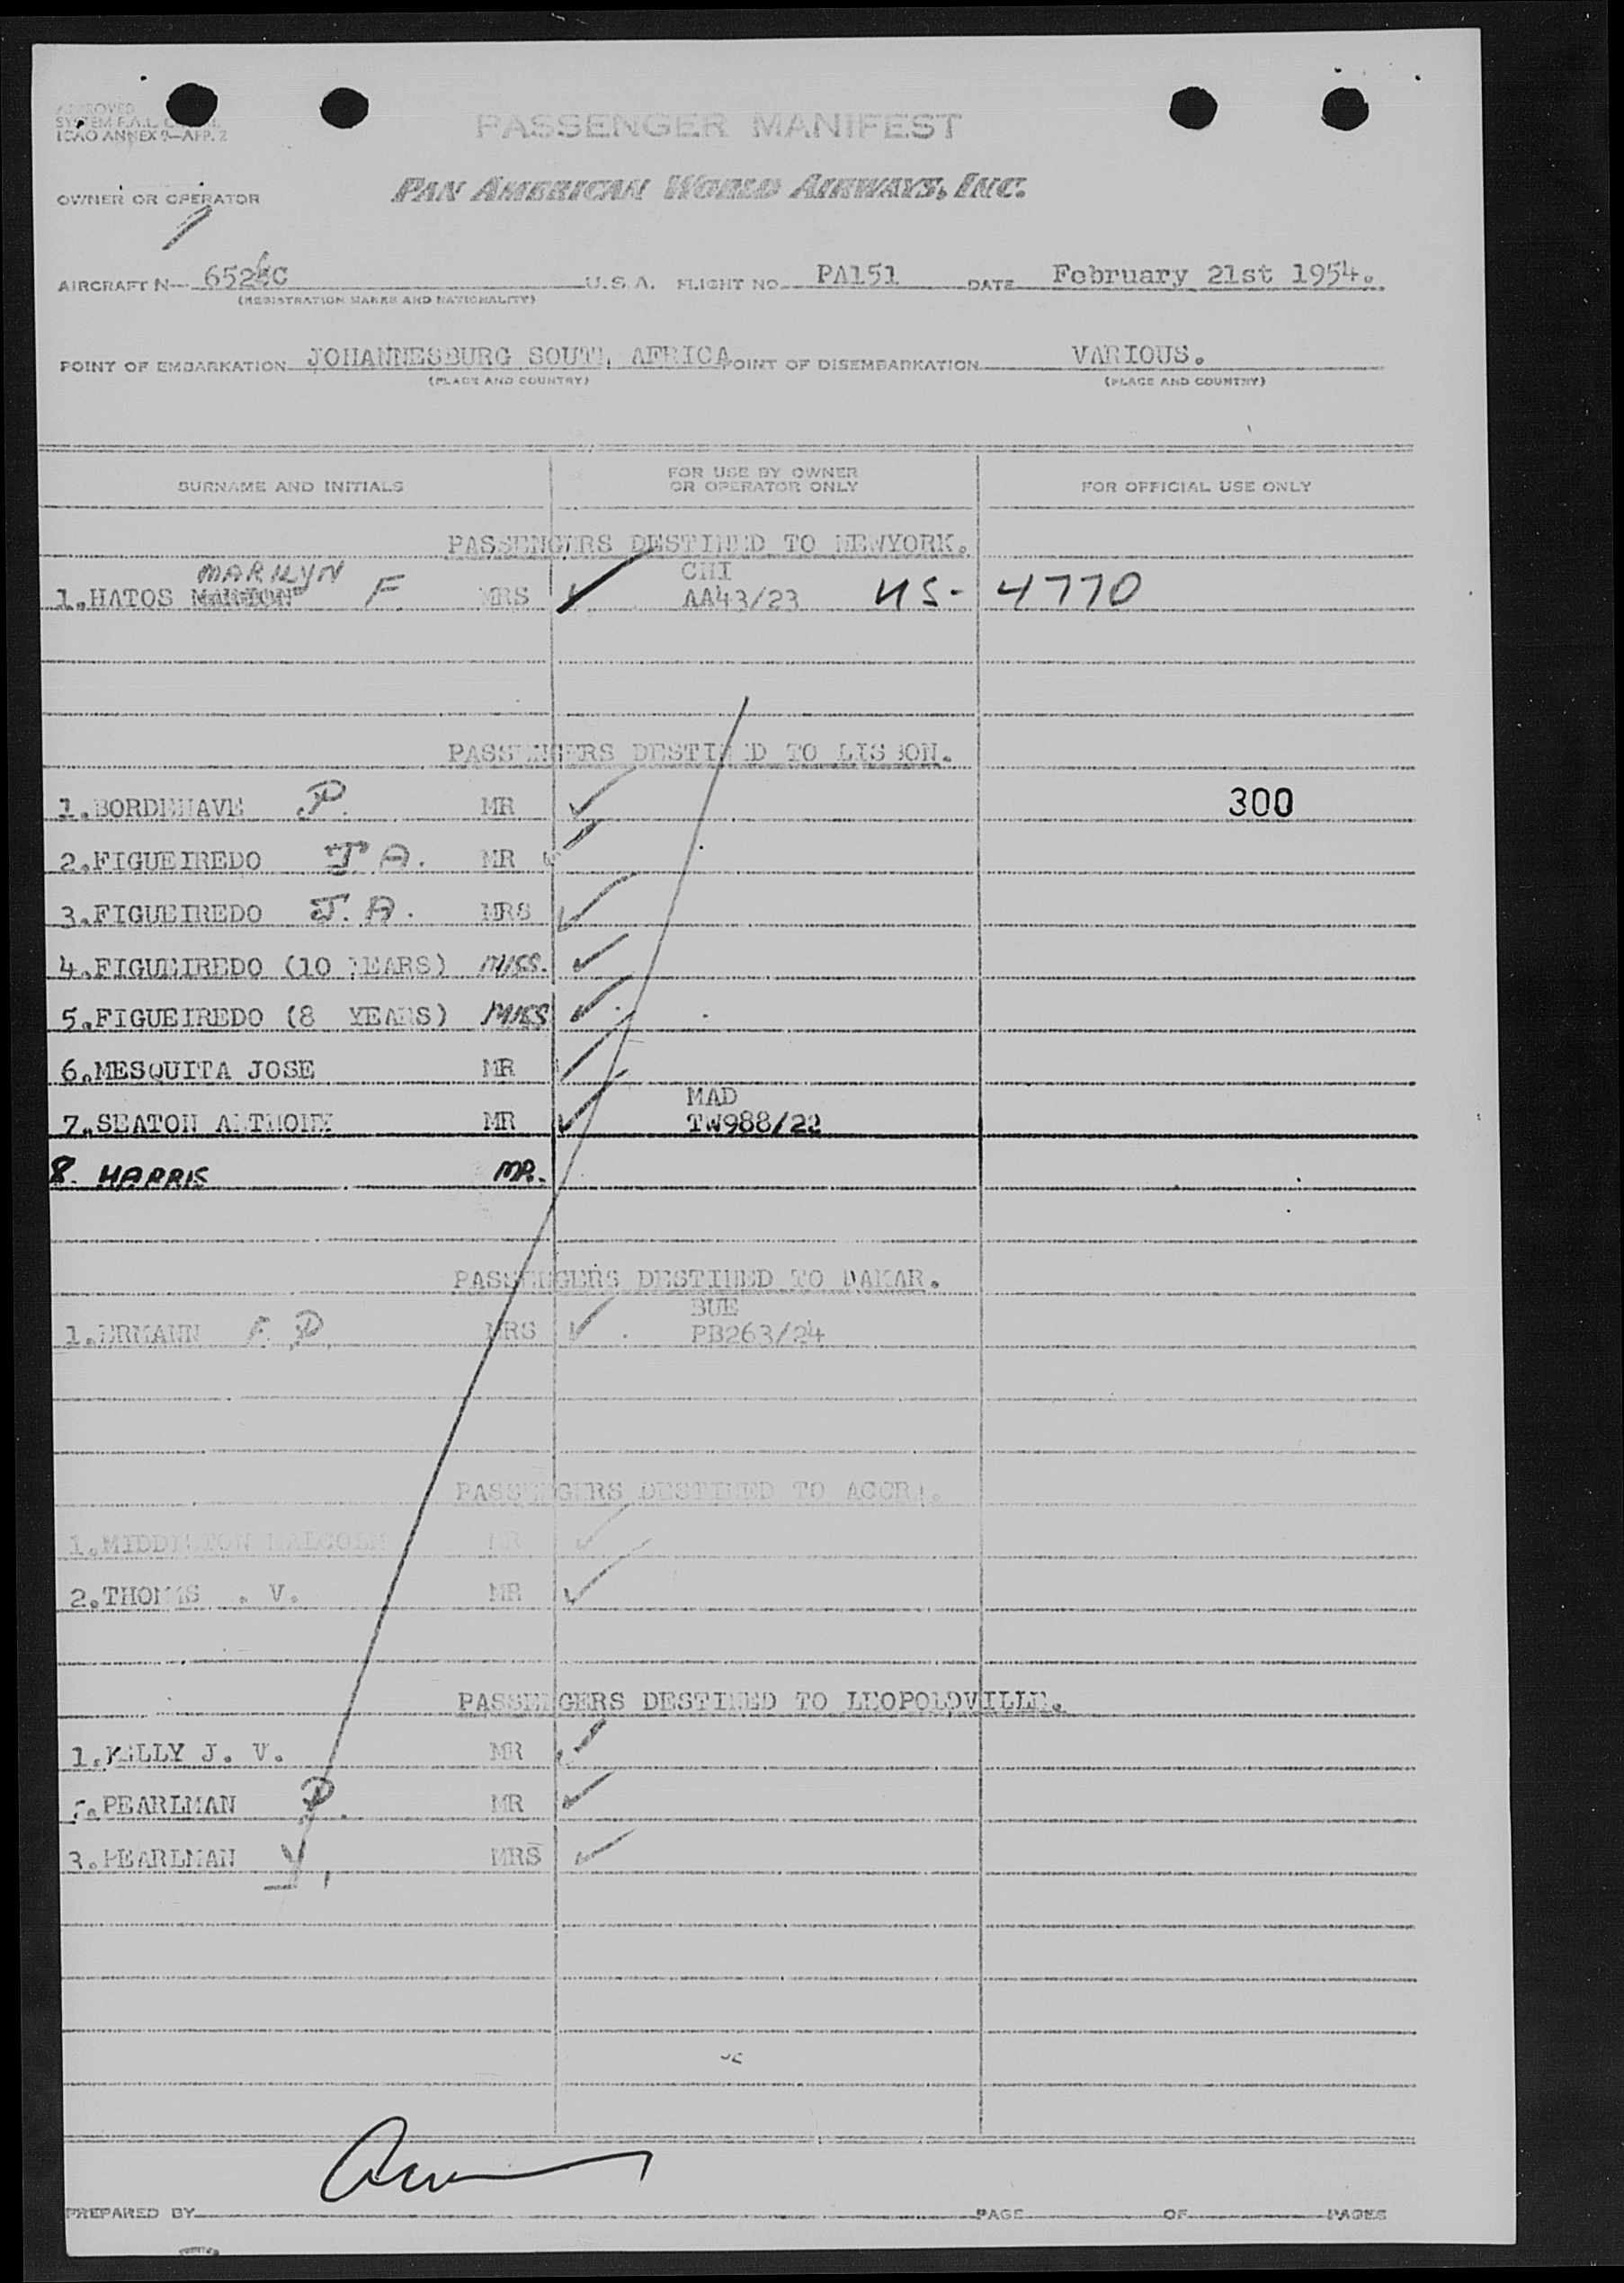 APPROVED
SYSTEM F.A.L.
ICAO ANNEX 9—APP. 2
PASSENGER MANIFEST
OWNER OR OPERATOR PAN AMERICAN WORLD AIRWAYS, INC.
AIRCRAFT N— U.S.A. FLIGHT NO. PA151 DATE February 21st 1954.
(REGISTRATION MARKS AND NATIONALITY)
POINT OF EMBARKATION JOHANNESBURG SOUTH AFRICA POINT OF DISEMBARKATION VARIOUS.
(PLACE AND COUNTRY) (PLACE AND COUNTRY)
SURNAME AND INITIALS FOR USE BY OWNER OR OPERATOR ONLY FOR OFFICIAL USE ONLY
PASSENGERS DESTINED TO NEWYORK.
MARILYN CHI
1.HATOS F MRS AA43/23 US- 4770
PASSENGERS DESTINED TO LISBON.
1.BORDEHAVE P. MR 300
2.FIGUEIREDO J A. MR
3.FIGUEIREDO J. A. MRS
4.FIGUEIREDO (10 YEARS) MISS.
5.FIGUEIREDO (8 YEARS) MISS
6.MESQUITA JOSE MR
MAD
7.SEATON ANTHONY MR TW988/22
8. HARRIS MR.
PASSENGERS DESTINED TO DAKAR.
BUE
1.ERMANN F. P. MRS PB263/24
PASSENGERS DESTINED TO ACCRA.
1.MIDDLETON MALCOLM MR
2.THOMAS . V. MR
PASSENGERS DESTINED TO LEOPOLDVILLE.
1.KELLY J. V. MR
PEARLMAN P. MR
3.PEARLMAN Y, MRS
PREPARED BY PAGE OF PAGES